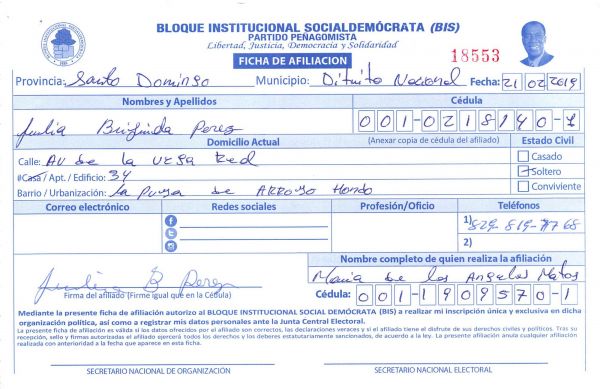 BLOQUE INSTITUCIONAL SOCIALDEMÓCRATA (BIS)
PARTIDO PEÑAGOMISTA
Libertad, Justicia, Democracia y Solidaridad
FICHA DE AFILIACION
18553
Provincia: Santo Domingo Municipio: Ditrito Nacional Fecha: 21 02 2019
Nombres y Apellidos Cédula
Julia Briginda Perez 001-0218140-1
Domicilio Actual (Anexar copia de cédula del afiliado) Estado Civil
Calle: AV de la VEGA Real Casado
#Casa / Apt. / Edificio: 34 Soltero
Barrio / Urbanización: la Puya de ARROYO Hondo Conviviente
Correo electrónico Redes sociales Profesión/Oficio Teléfonos
1) 829-819-7768
2)
Nombre completo de quien realiza la afiliación
B Perez Maria de los Angeles Matos
Firma del afiliado (Firme igual que en la Cédula) Cédula: 001-1909570-1
Mediante la presente ficha de afiliación autorizo al BLOQUE INSTITUCIONAL SOCIAL DEMÓCRATA (BIS) a realizar mi inscripción única y exclusiva en dicha
organización política, así como a registrar mis datos personales ante la Junta Central Electoral.
La presente ficha de afiliación es válida si los datos ofrecidos por el afiliado son correctos, las declaraciones veraces y si el afiliado tiene el disfrute de sus derechos civiles y políticos. Tras su
recepción, sello y firmas autorizadas el afiliado ejercerá todos los derechos y los deberes estatutariamente sancionados, de acuerdo a la ley. La presente afiliación anula cualquier afiliación
realizada con anterioridad a la fecha que aparece en esta ficha.
SECRETARIO NACIONAL DE ORGANIZACIÓN SECRETARIO NACIONAL ELECTORAL